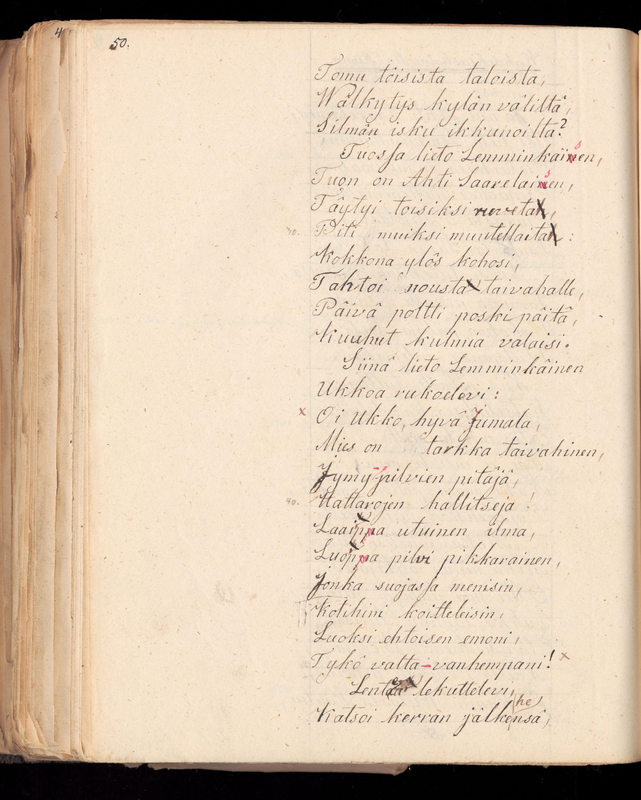 50.
Tomu töisistä taloista,
Wälkytys kylän välittä,
Silmän isku ikkunoilta?
Tuossa lieto Lemminkäinen,
Tuon on Ahti Saarelainen,
Täytyi toisiksi ruveta,
30. Piti muiksi muutellaita:
Kokkona ylös kohosi,
Tahtoi nousta taivahalle,
Päivä poltti poskipäitä,
Kuuhut kulmia valaisi.
Siinä lieto Lemminkäinen
Ukkoa rukoelevi:
x Oi Ukko, hyvä Jumala,
Mies on tarkka taivahinen,
Jymy-pilvien pitäjä,
40. Hattarojen hallitseja!
Laaippa utuinen ilma,
Luoppa pilvi pikkarainen,
Jonka suojassa menisin,
Kotihini koitteleisin,
Luoksi ehtoisen emoni,
Tykö valta-vanhempani! x
lekuttelevi,
Katsoi kerran jälkehensä,